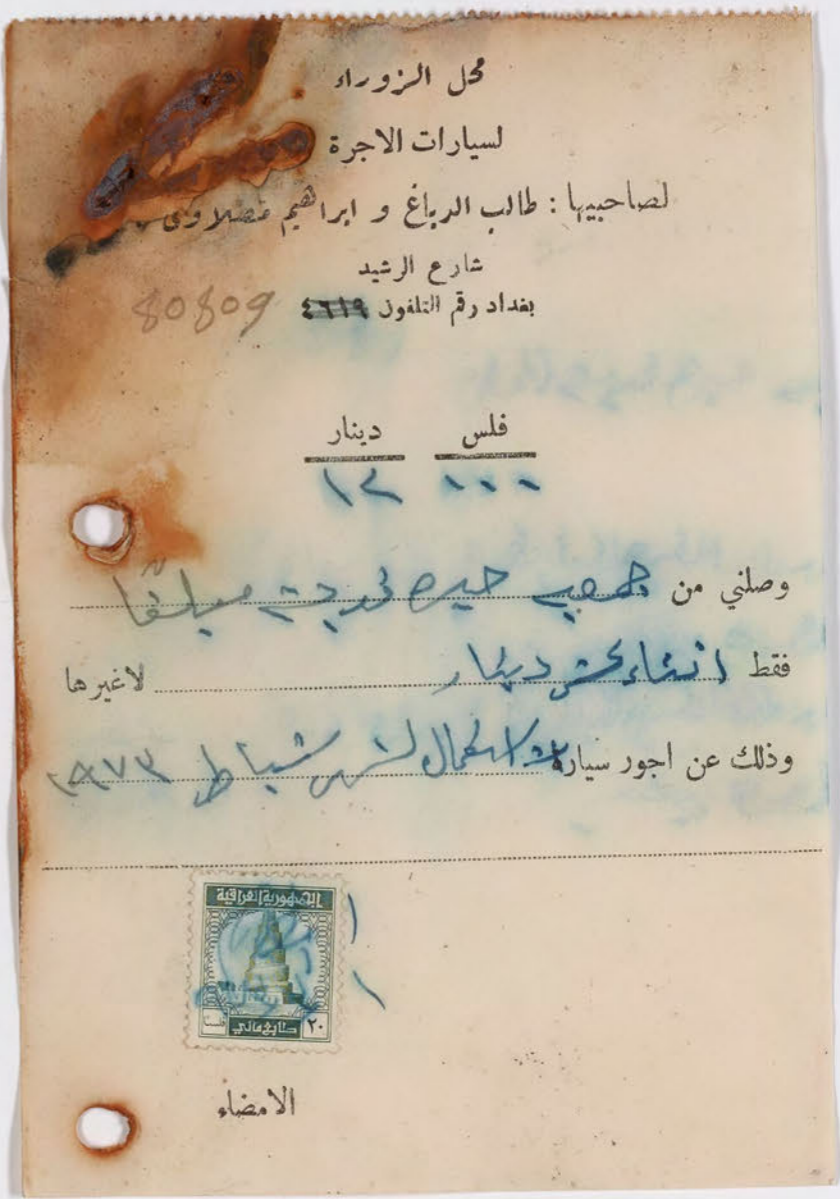 محل الزوراء
لسيارات الاجرة
لصاحبيها : طالب الدباغ و ابراهيم مصلاوي
شارع الرشيد
بغداد رقم التلفون ٤٦١٩ 80809
فلس دينار
١٢
وصلني من
فقط اثناء عشر دينار لاغيرها
وذلك عن اجور سيارة لشهر شباط ١٩٧٣
الجمهورية العراقية
٢٠ طابع مالي
الامضاء